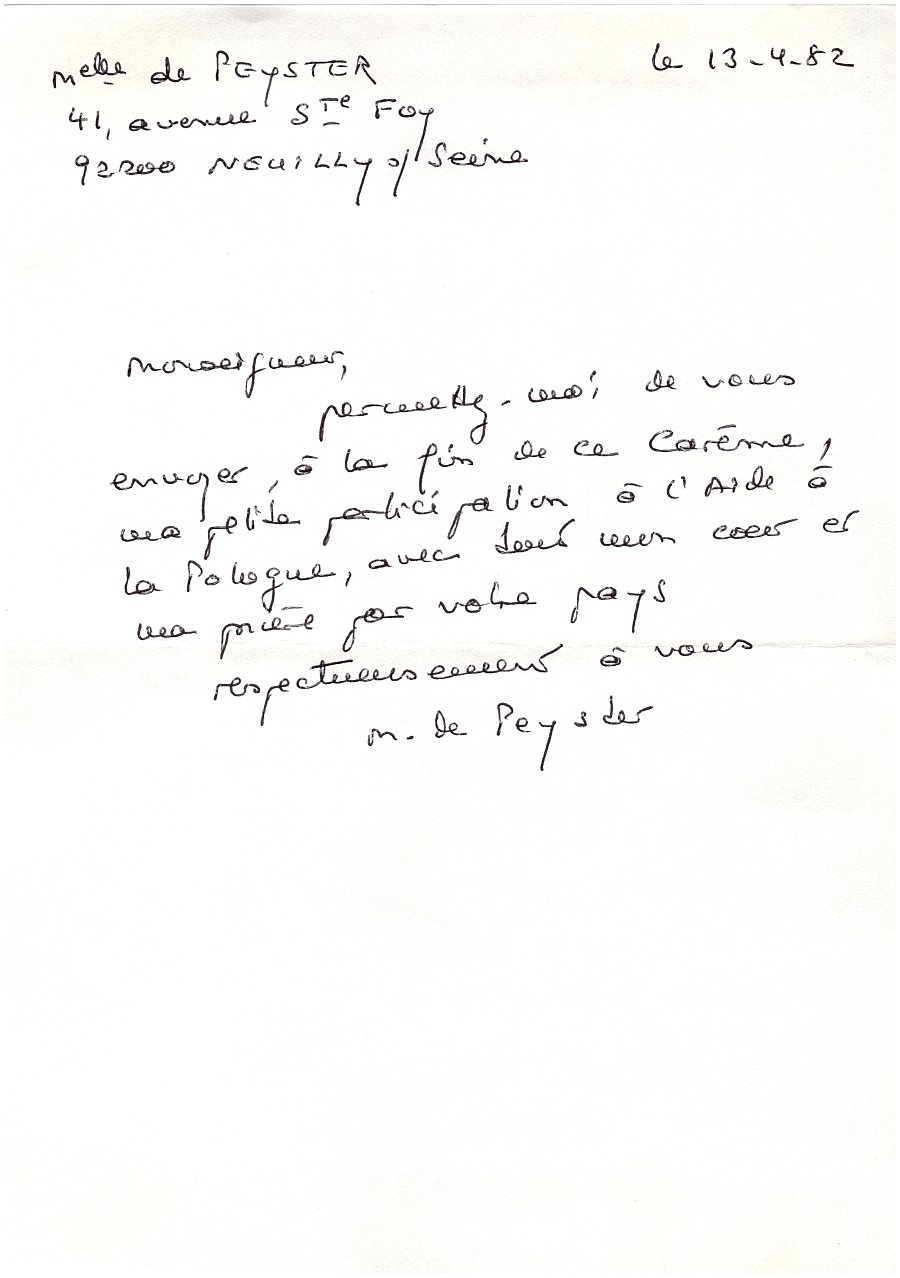 Melle de PEYSTER
le 13-4-82
41, avenue Ste Foy
92200 NEUILLY s/Seine
Monseigneur,
permettez-moi de vous
envoyer, à la fin de ce Carême,
ma petite participation à l'Aide à
la Pologne, avec tout mon coeur et
ma prière por votre pays
respectueusement à vous
M. de Peyster